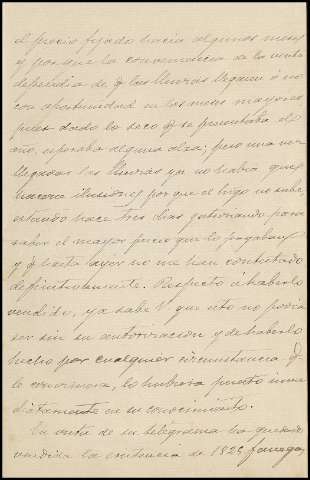 el precio fijado hacia algunos meses
y porque la conveniencia de la venta
dependia de q. las lluvias llegaran ó no
con oportunidad en los meses mayores
pues dado lo seco q. se presentaba el
año, esperaba alguna alza; pero una vez
llegadas las lluvias ya no habia que
hacerse ilusiones porque el trigo no sube
estando hace tres dias gestionando para
saber el mayor precio que lo pagaban
y q. hasta ayer no me han contestado
definitivamente. Respecto á haberlo
vendido, ya sabe V. que esto no podia
ser sin su autorizacion y de haberlo
hecho por cualquier circunstancia q.
le conviniera, lo hubiera puesto inme
diatamente en su conocimiento.
En vista de su telegrama ha quedado
vendida la existencia de 1829 fanegas